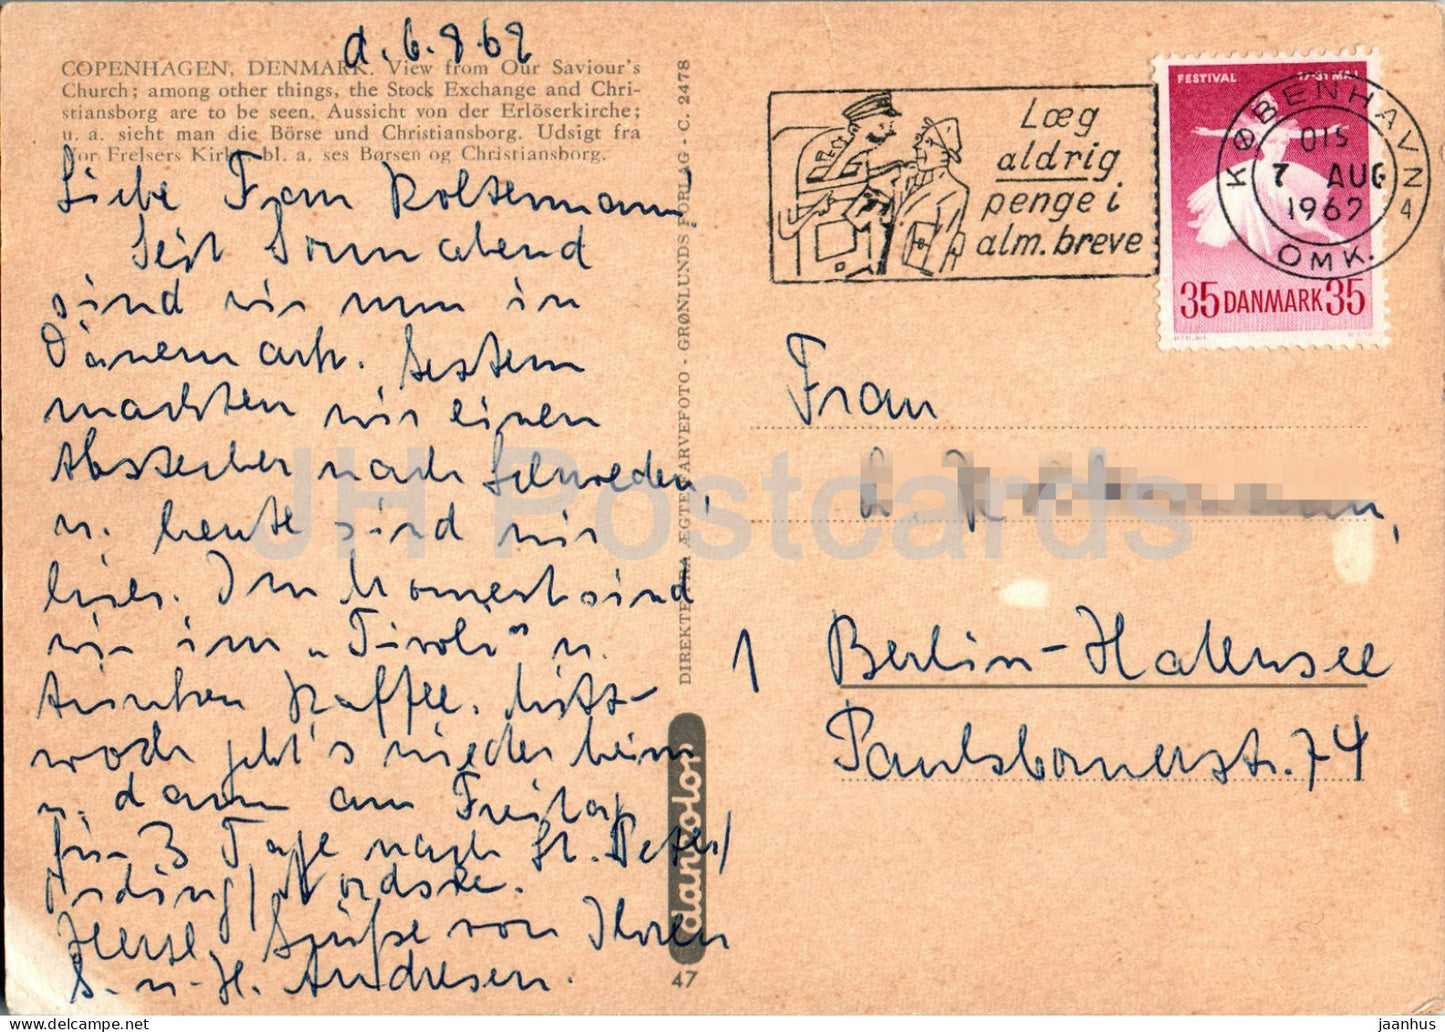 d. 6.8.62
COPENHAGEN, DENMARK. View from Our Saviour's
Church; among other things, the Stock Exchange and Chri-
stiansborg are to be seen. Aussicht von der Erlöserkirche;
u. a. sieht man die Börse und Christiansborg. Udsigt fra
Vor Frelsers Kirke bl. a. ses Børsen og Christiansborg.
Liebe Frau Koltermann
Seit Sonnabend
sind wir nun in
Dänemark. Gestern
machten wir einen
Abstecher nach Schweden,
u. heute sind wir
hier. Im Moment sind
wir im „Tivoli" u.
trinken Kaffee. Mitt-
woch geht's wieder heim
u. dann am Freitag
für 3 Tage nach St. Peter/
Ording/Nordsee.
Herzl. Grüße von Ihren
S. u. H. Andresen.
DIREKTE FRA ÆGTE FARVEFOTO - GRØNLUNDS FORLAG - C. 2478
danvolor
47
Læg
aldrig
penge i
alm. breve
FESTIVAL 17-31 MAJ
35 DANMARK 35
KØBENHAVN 4
015
7 AUG
1962
OMK.
Frau
1 Berlin-Halensee
Paulsbornerstr. 74
JH Postcards
www.delcampe.net
jaanhus